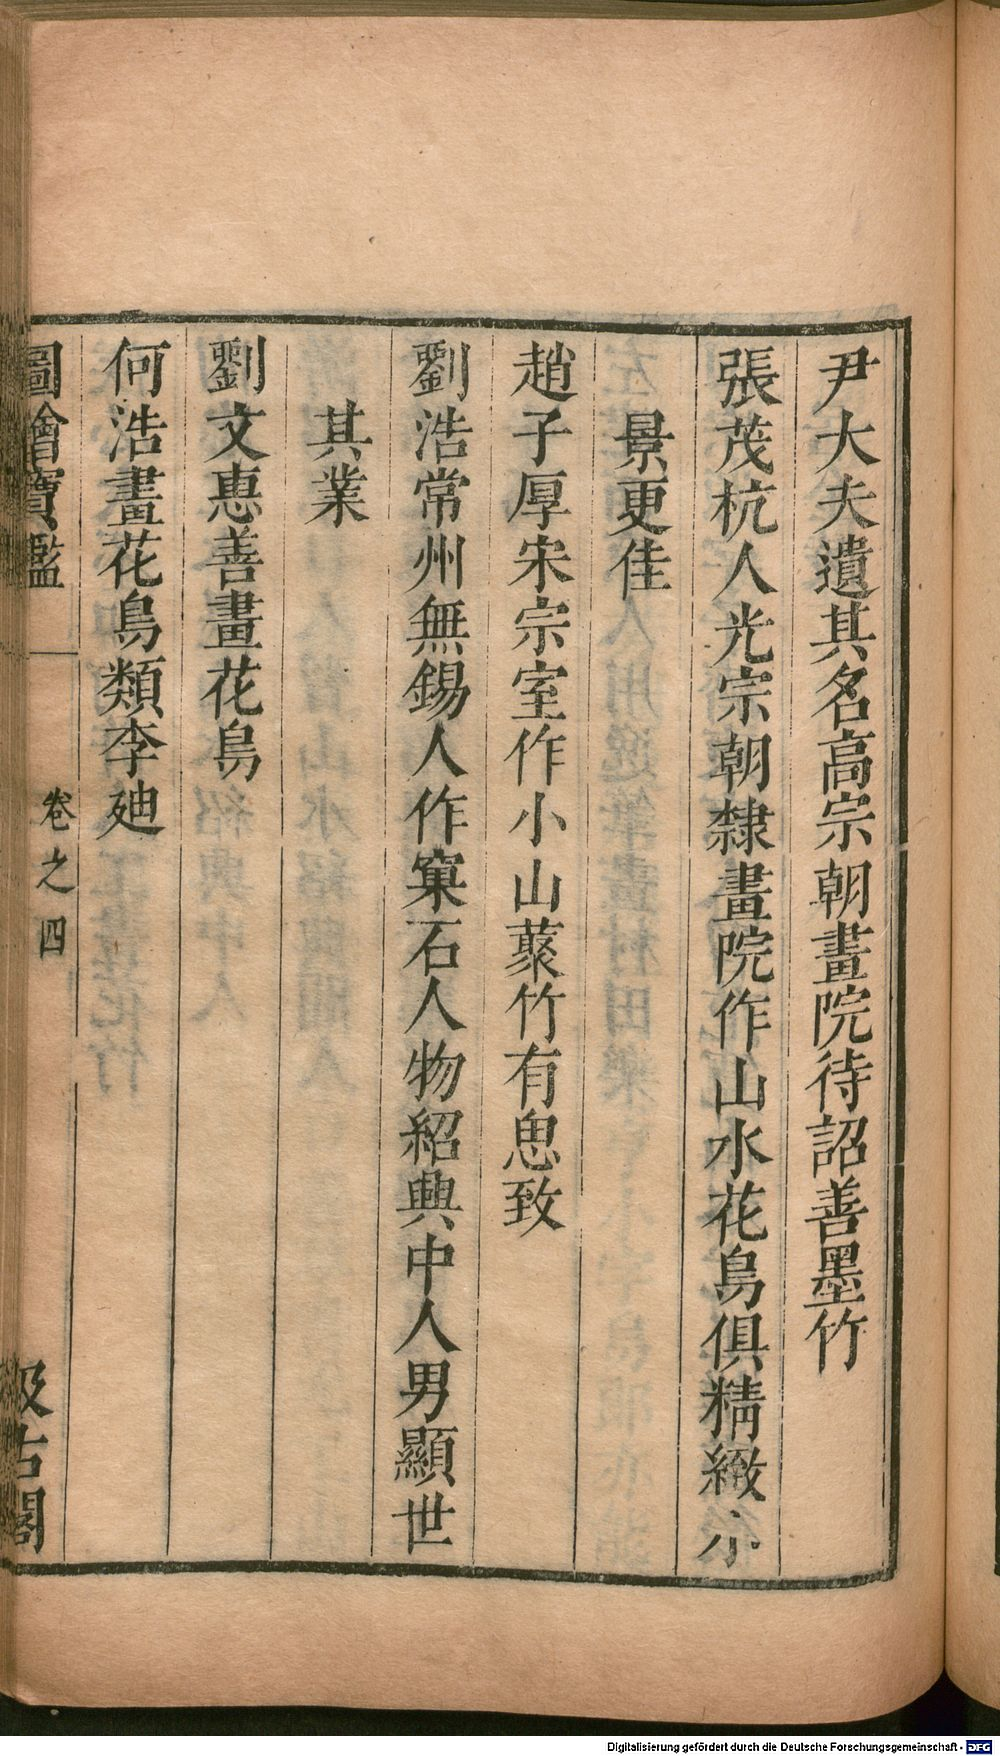 尹大夫遺其名高宗朝畫院待詔善墨竹
張茂杭人光宗朝隸畫院作山水花鳥俱精緻小
景更佳
趙子厚宋宗室作小山藂竹有思致
劉浩常州無錫人作窠石人物紹興中人男顯世
其業
劉文惠善畫花鳥
何浩畫花鳥類李廸
圖繪寶鑑
卷之四
汲古閣
Digitalisierung gefördert durch die Deutsche Forschungsgemeinschaft - DFG